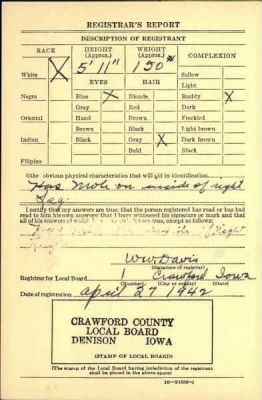 REGISTRAR'S REPORT
DESCRIPTION OF REGISTRANT
RACE HEIGHT (Approx.) WEIGHT (Approx.) COMPLEXION
White X 5' 11" 150 Sallow
Light
EYES HAIR
Negro Blue X Blonde Ruddy X
Gray Red Dark
Oriental Hazel Brown Freckled
Brown Black Light brown
Indian Black Gray X Dark brown
Bald Black
Filipino
Other obvious physical characteristics that will aid in identification
Has Mole on inside of right
Leg
I certify that my answers are true; that the person registered has read or has had
read to him his own answers; that I have witnessed his signature or mark and that
all of his answers of
W W Davis
(Signature of registrar)
Registrar for Local Board 1 Crawford Iowa
(Number) (City or county) (State)
Date of registration April 27 1942
CRAWFORD COUNTY
LOCAL BOARD
DENISON IOWA
(STAMP OF LOCAL BOARD)
(The stamp of the Local Board having jurisdiction of the registrant
shall be placed in the above space)